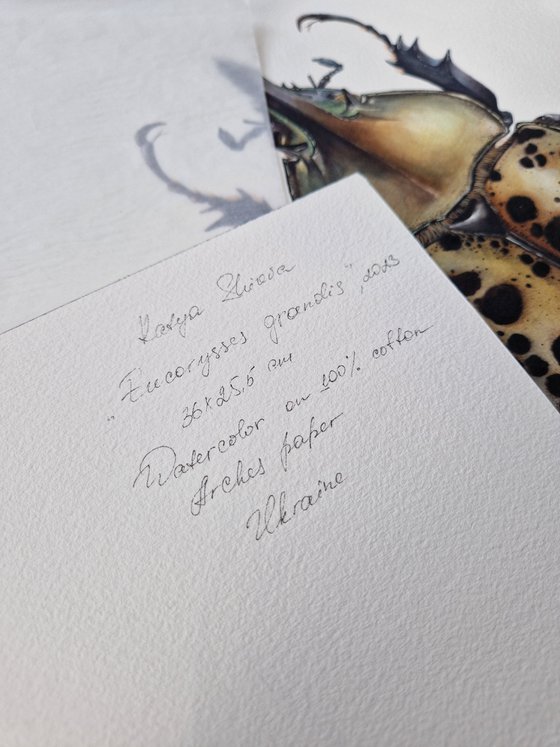 Katya Shiova
"Eucorysses grandis", 2023
36x25.5 cm
Watercolor on 100% cotton
Arches paper
Ukraine